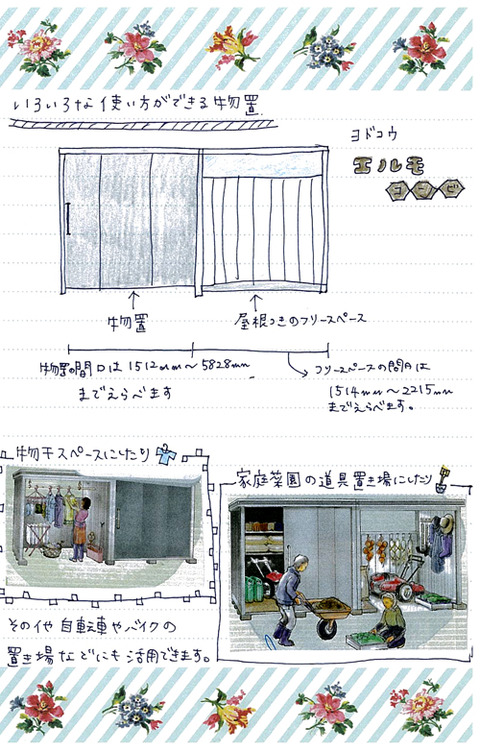 いろいろな使い方ができる物置
ヨドコウ
エルモ
コンビ
物置
屋根つきのフリースペース
物置の間口は1512mm～5828mm
までえらべます
フリースペースの間口は
1514mm～2215mm
までえらべます。
物干スペースにしたり
家庭菜園の道具置き場にしたり
その他自転車やバイクの
置き場などにも活用できます。